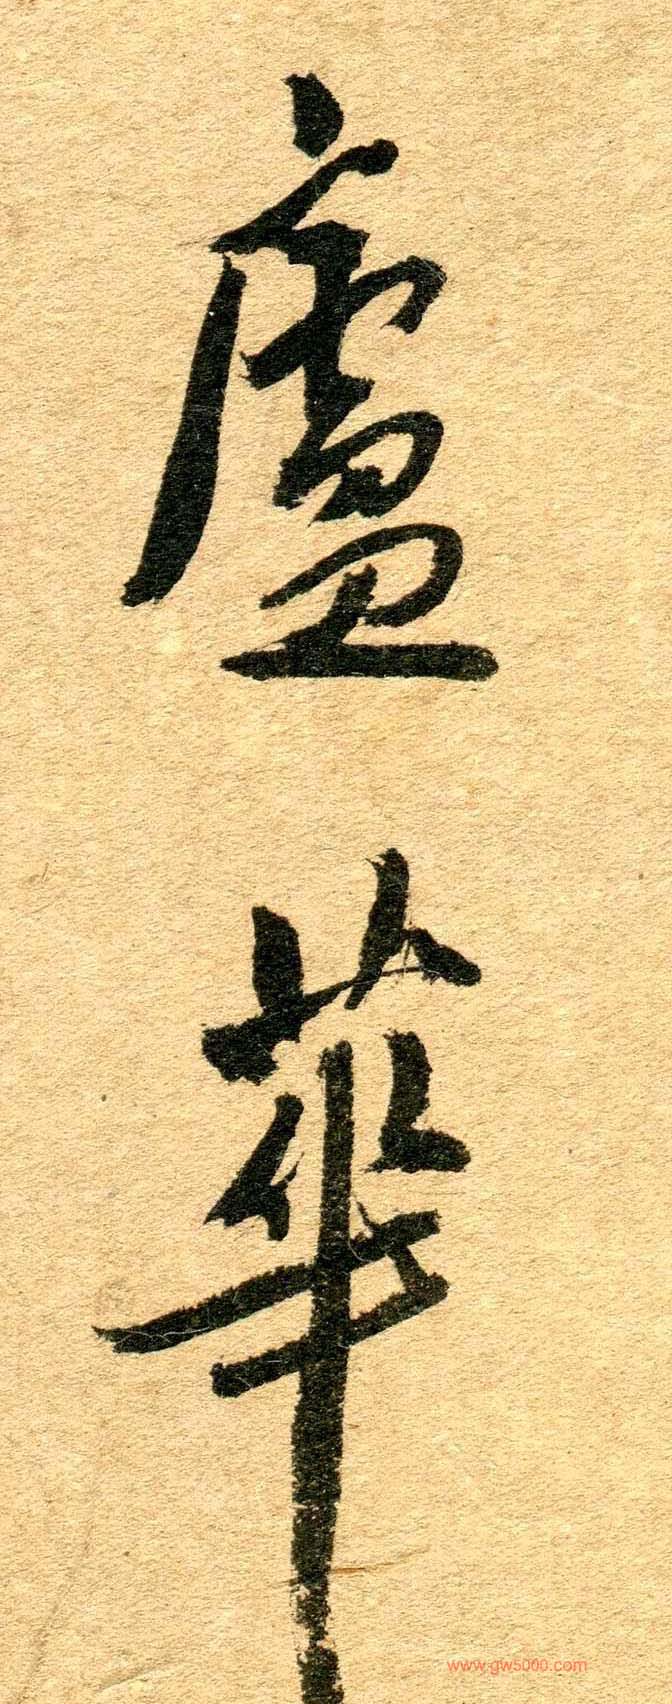 盧
華
www.gw5000.com